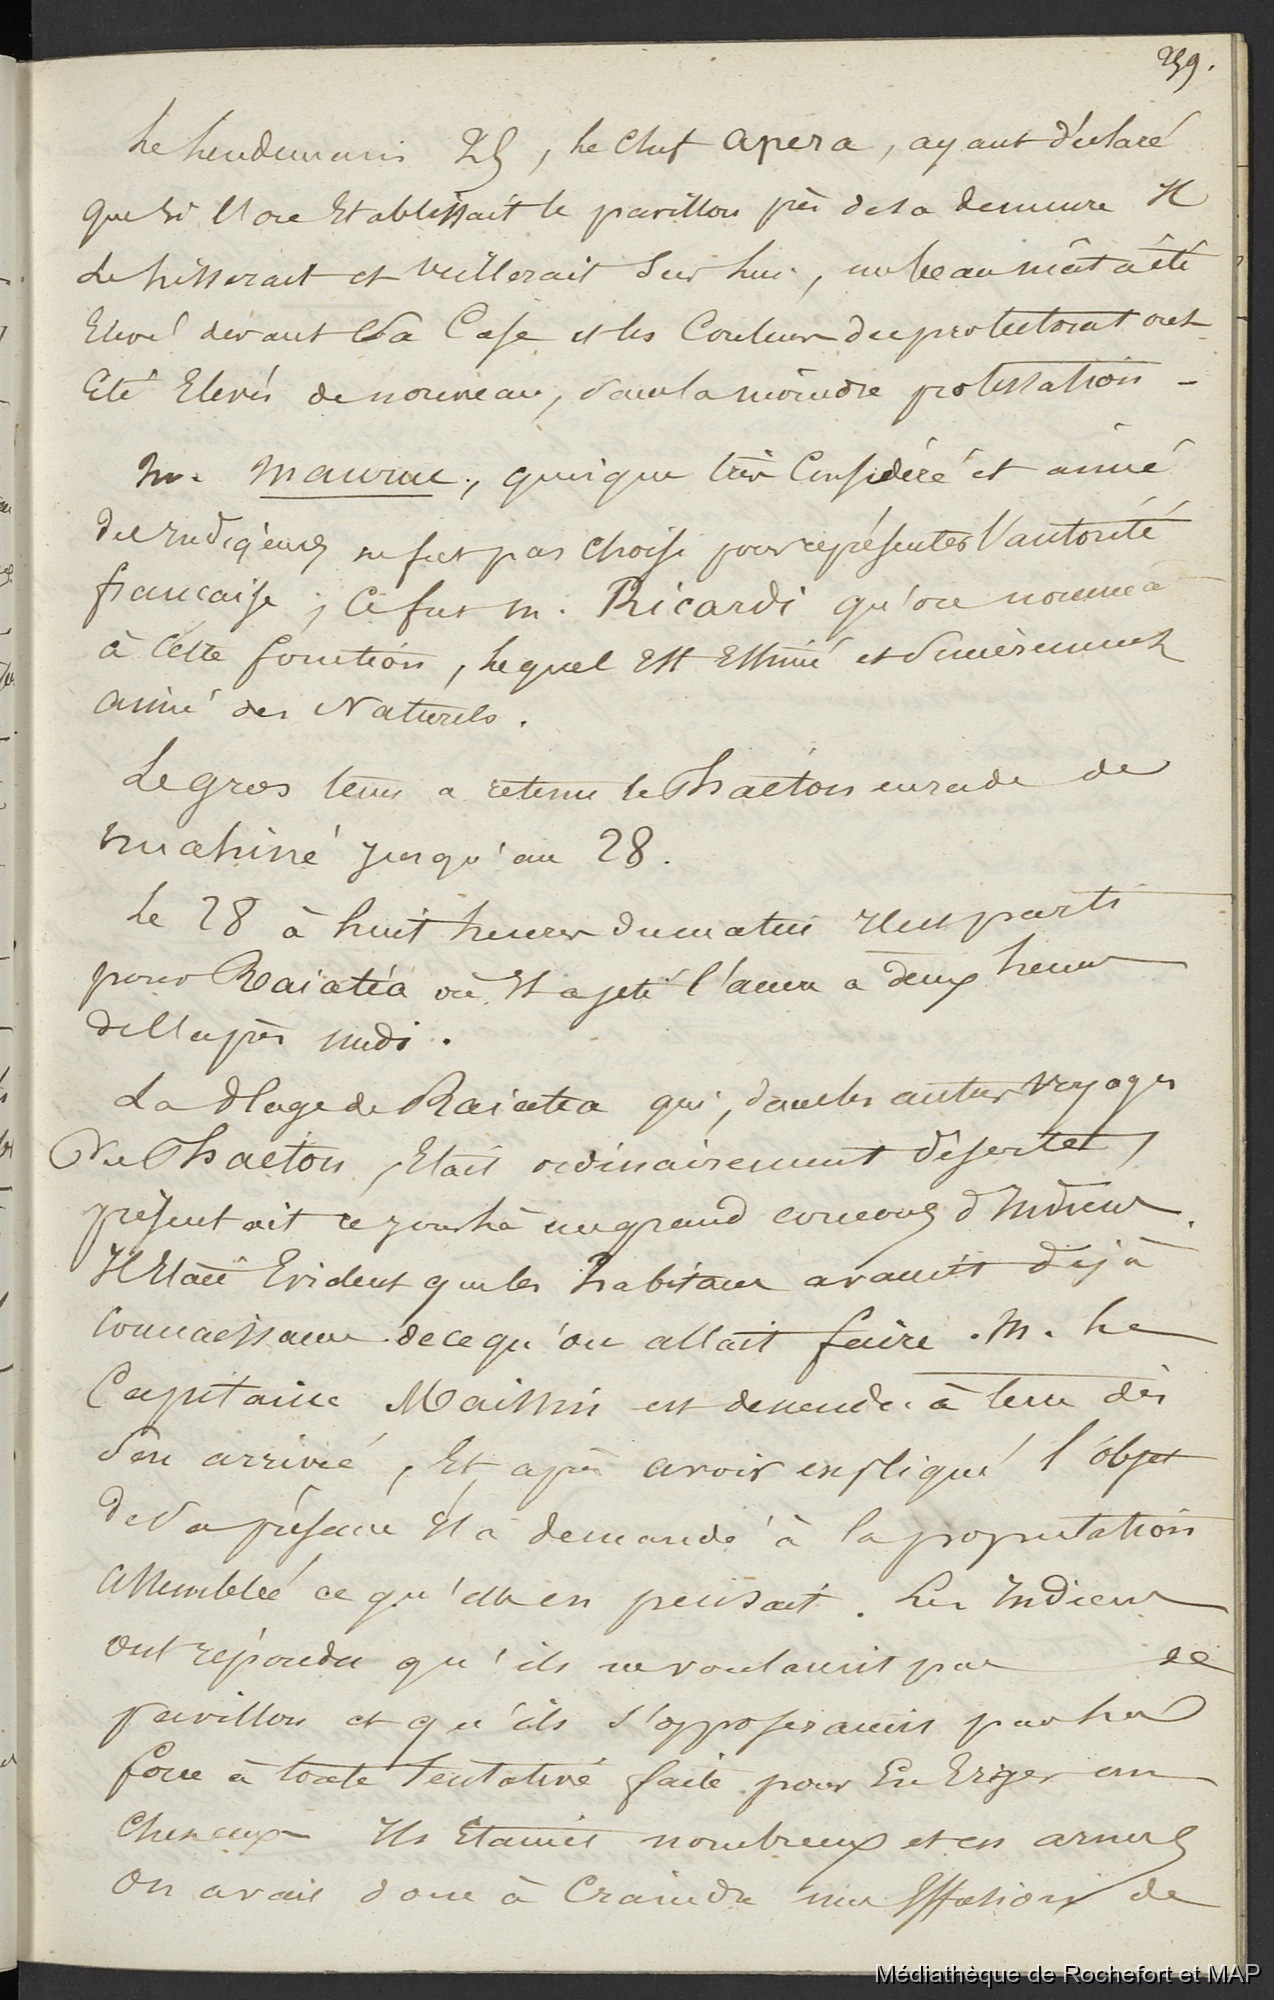 259.
Le Lendemain 25, Le Chef apera, ayant déclaré
que si l'on Etablissait le pavillon près de sa demeure Il
Le hisserait et veillerait Sur Lui, un beau mât a été
Elevé devant Sa Case et les Couleurs du protectorat ont
Eté Elevés de nouveau, sans la moindre protestation -
M. , quoique très Considéré et aimé
des Indigènes ne fut pas Choisi pour représenter l'autorité
francaise ; Ce fut M. Ricardi qu'on nomma
à Cette fonction, Lequel Est Estimé et Sincèrement
aimé des Naturels.
Le gros tems a retenu le Phaeton en rade de
Huahiné jusqu'au 28.
Le 28 à huit heures du matin Il est parti
pour Raiatéa où Il a jeté l'ancre à deux heures
de l'après midi.
La Plage de Raiatea qui, dans les autres Voyages
Du Phaeton, Etait ordinairement déserte,
présentait ce jour là un grand concours d'Indiens.
Il Etait Evident que les habitans avaient déjà
Connaissance de ce qu'on allait faire. M. Le
Capitaine Maissin est descendu à terre dès
Son arrivée, Et après avoir expliqué l'objet
de Sa présence Il a demandé à la population
assemblée ce qu'elle en pensait. Les Indiens
ont répondu qu'ils ne voulaient pas de
pavillon et qu'ils s'opposeraient par la
force à toute tentative faite pour En Eriger un
Chez eux Ils Etaient nombreux et en armes
On avait donc à Craindre une Effusion de
Médiathèque de Rochefort et MAP